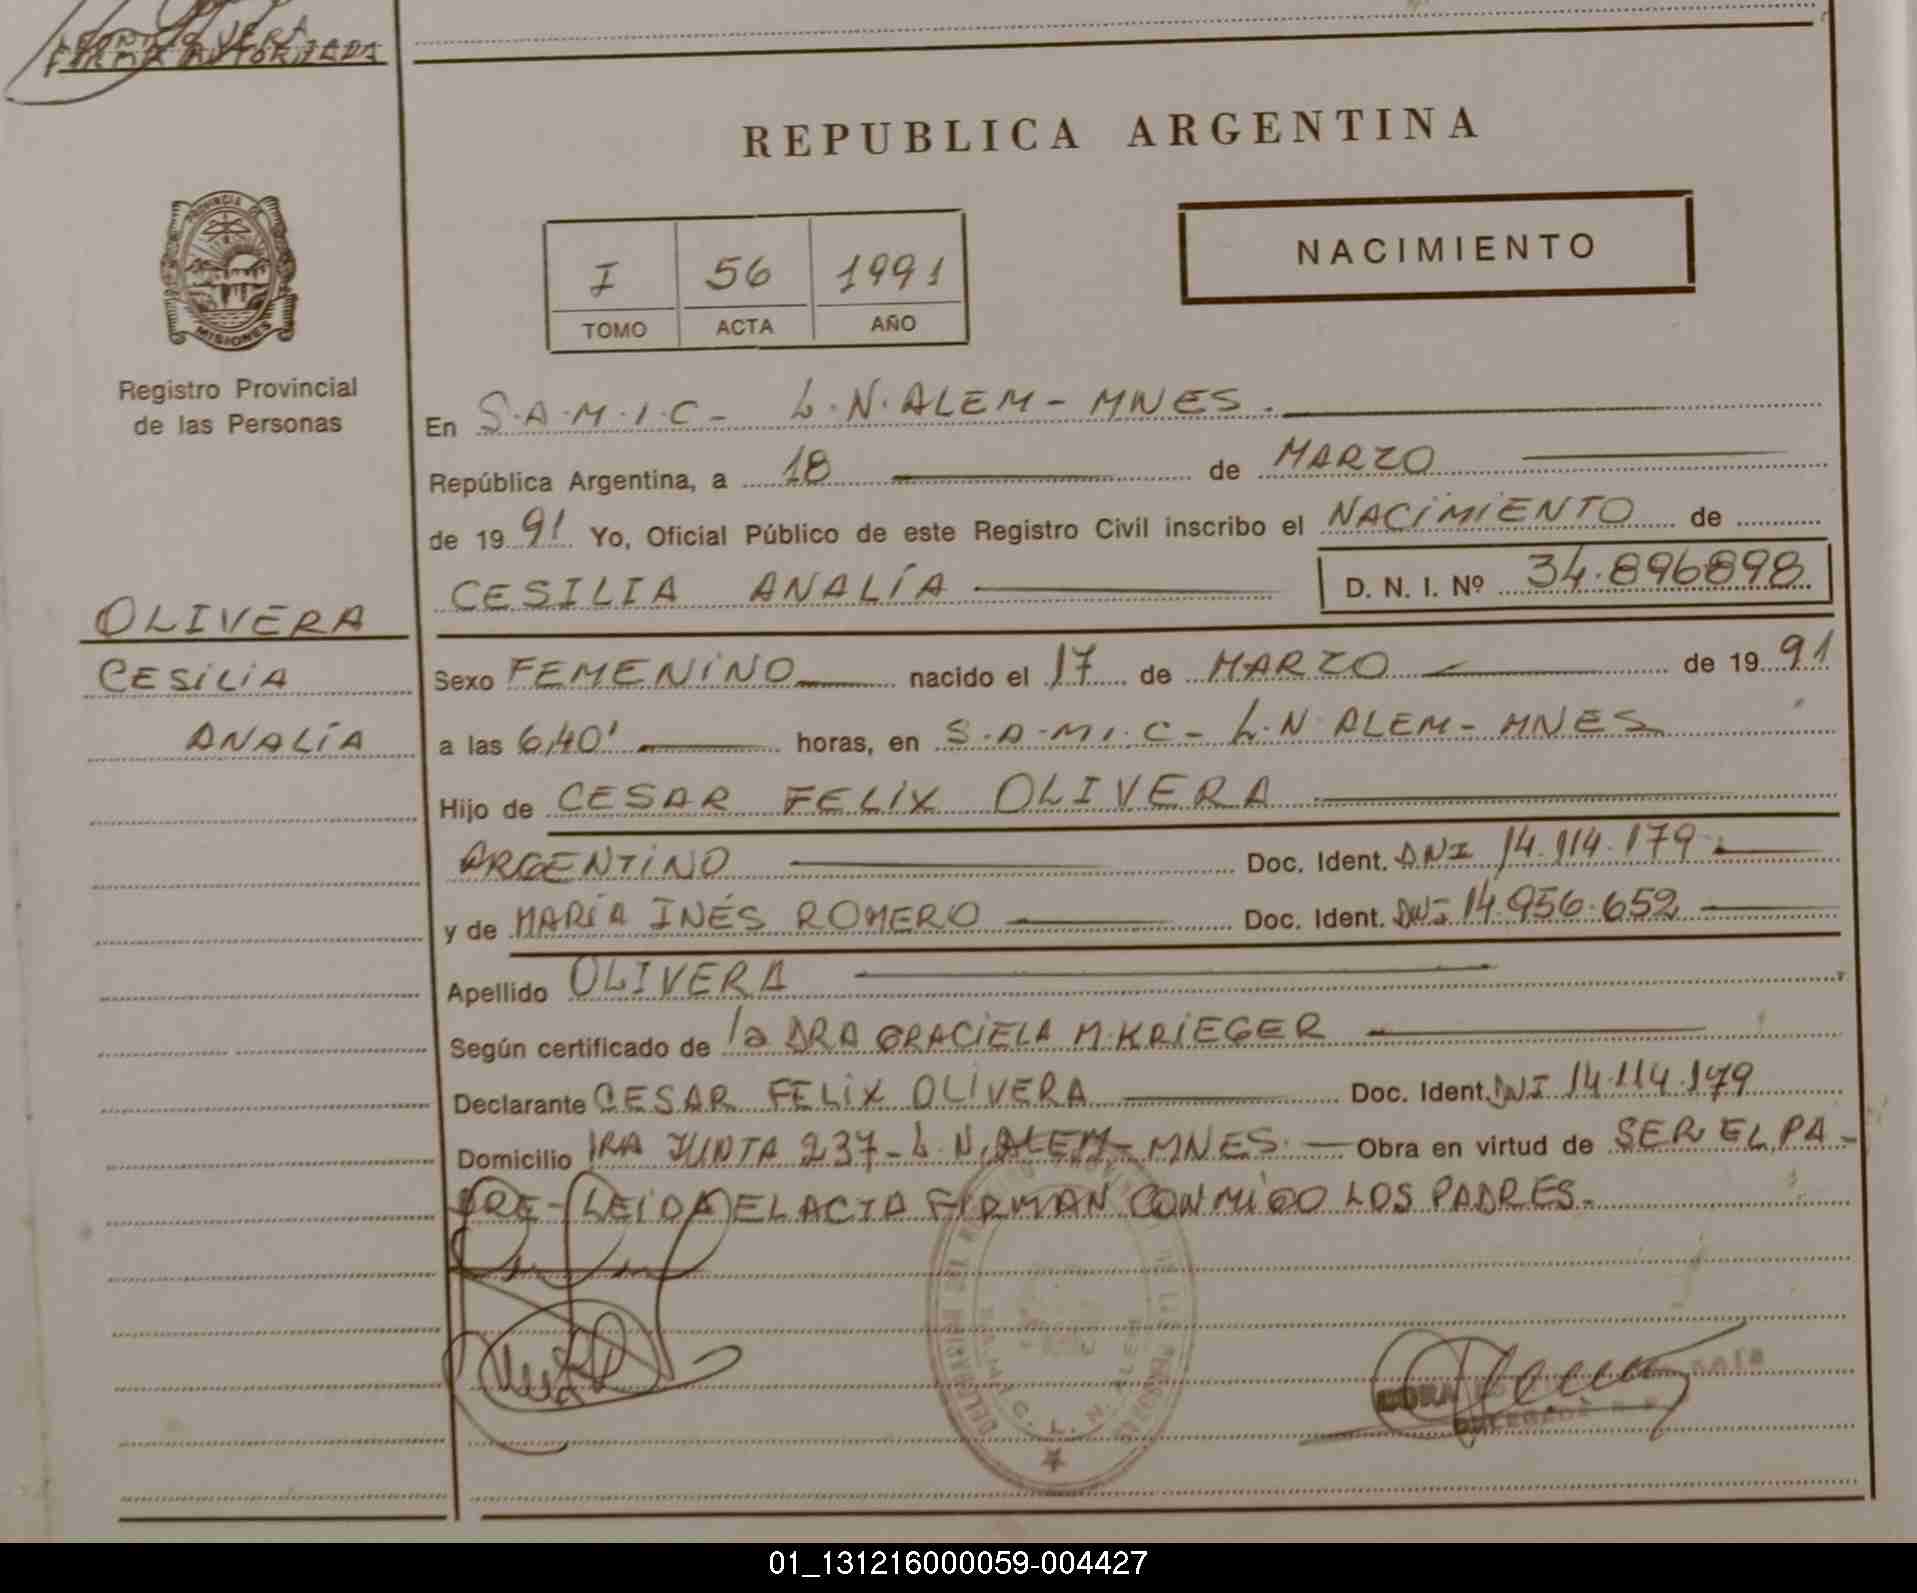 FIRMA AUTORIZADA
REPUBLICA ARGENTINA
PROVINCIA DE
MISIONES
Registro Provincial
de las Personas
I 56 1991
TOMO ACTA AÑO
NACIMIENTO
En S.A.M.I.C - L.N.ALEM - MNES.
República Argentina, a 18 de MARZO
de 1991 Yo, Oficial Público de este Registro Civil inscribo el NACIMIENTO de
CESILIA ANALÍA D. N. I. Nº 34.896898
OLIVERA
CESILIA
ANALÍA
Sexo FEMENINO nacido el 17 de MARZO de 1991
a las 6,40' horas, en S.A.M.I.C - L.N ALEM - MNES
Hijo de CESAR FELIX OLIVERA
ARGENTINO Doc. Ident. DNI 14.114.179
y de MARÍA INÉS ROMERO Doc. Ident. DNI 14.956.652
Apellido OLIVERA
Según certificado de la DRA GRACIELA M. KRIEGER
Declarante CESAR FELIX OLIVERA Doc. Ident. DNI 14.114.179
Domicilio 1RA JUNTA 237 - L.N. ALEM - MNES. Obra en virtud de SER EL PA-
DRE - LEIDA EL ACTA FIRMAN CONMIGO LOS PADRES.
01_131216000059-004427